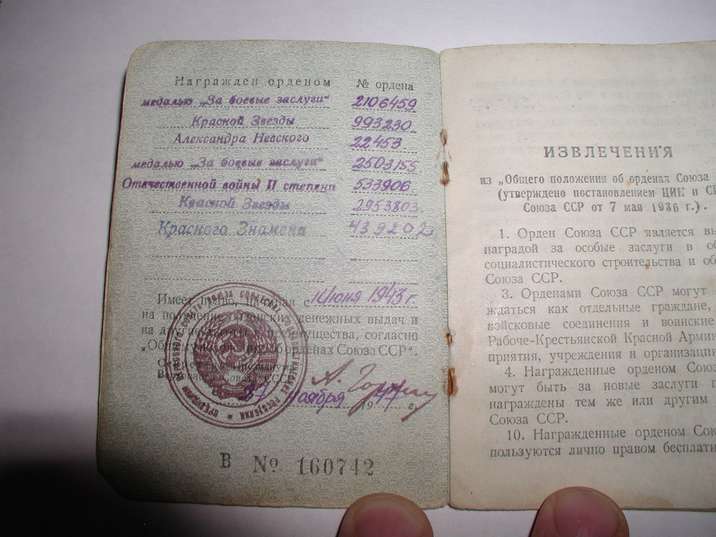 Награжден орденом № ордена
медалью „За боевые заслуги“ 2106459
Красной Звезды 993230
Александра Невского 22453
медалью „За боевые заслуги“ 2503155
Отечественной войны II степени 533906
Красной Звезды 2953803
Красного Знамени 439202
Имеет право, начиная с 1 июня 1943 г.
на получение денежных выдач и
на согласно
орденах Союза ССР“.
А. Горкин
27 ноября 19 47 г.
В № 160742
ИЗВЛЕЧЕНИЯ
из „Общего положения об орденах Союза
(утверждено постановлением ЦИК и
Союза ССР от 7 мая 1936 г.).
1. Орден Союза ССР является
наградой за особые заслуги в
социалистического строительства и
Союза ССР.
3. Орденами Союза ССР могут
ждаться как отдельные граждане,
войсковые соединения и воинские
Рабоче-Крестьянской Красной
приятия, учреждения и
4. Награжденные орденом
могут быть за новые заслуги
награждены тем же или другим
Союза ССР.
10. Награжденные орденом
пользуются лично правом